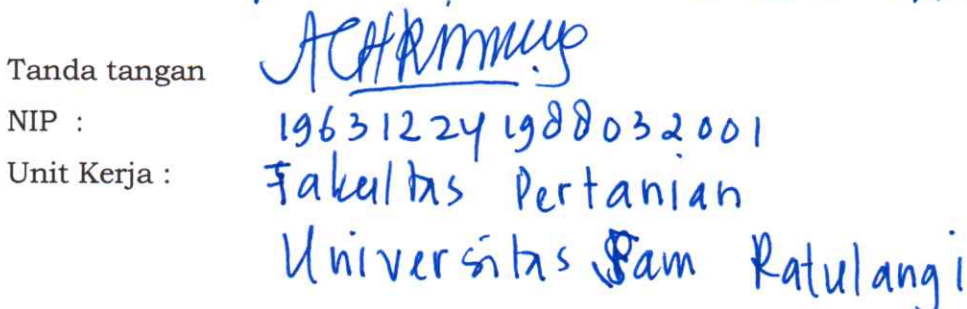 Tanda tangan
NIP : 196312241988032001
Unit Kerja : Fakultas Pertanian
Universitas Sam Ratulangi